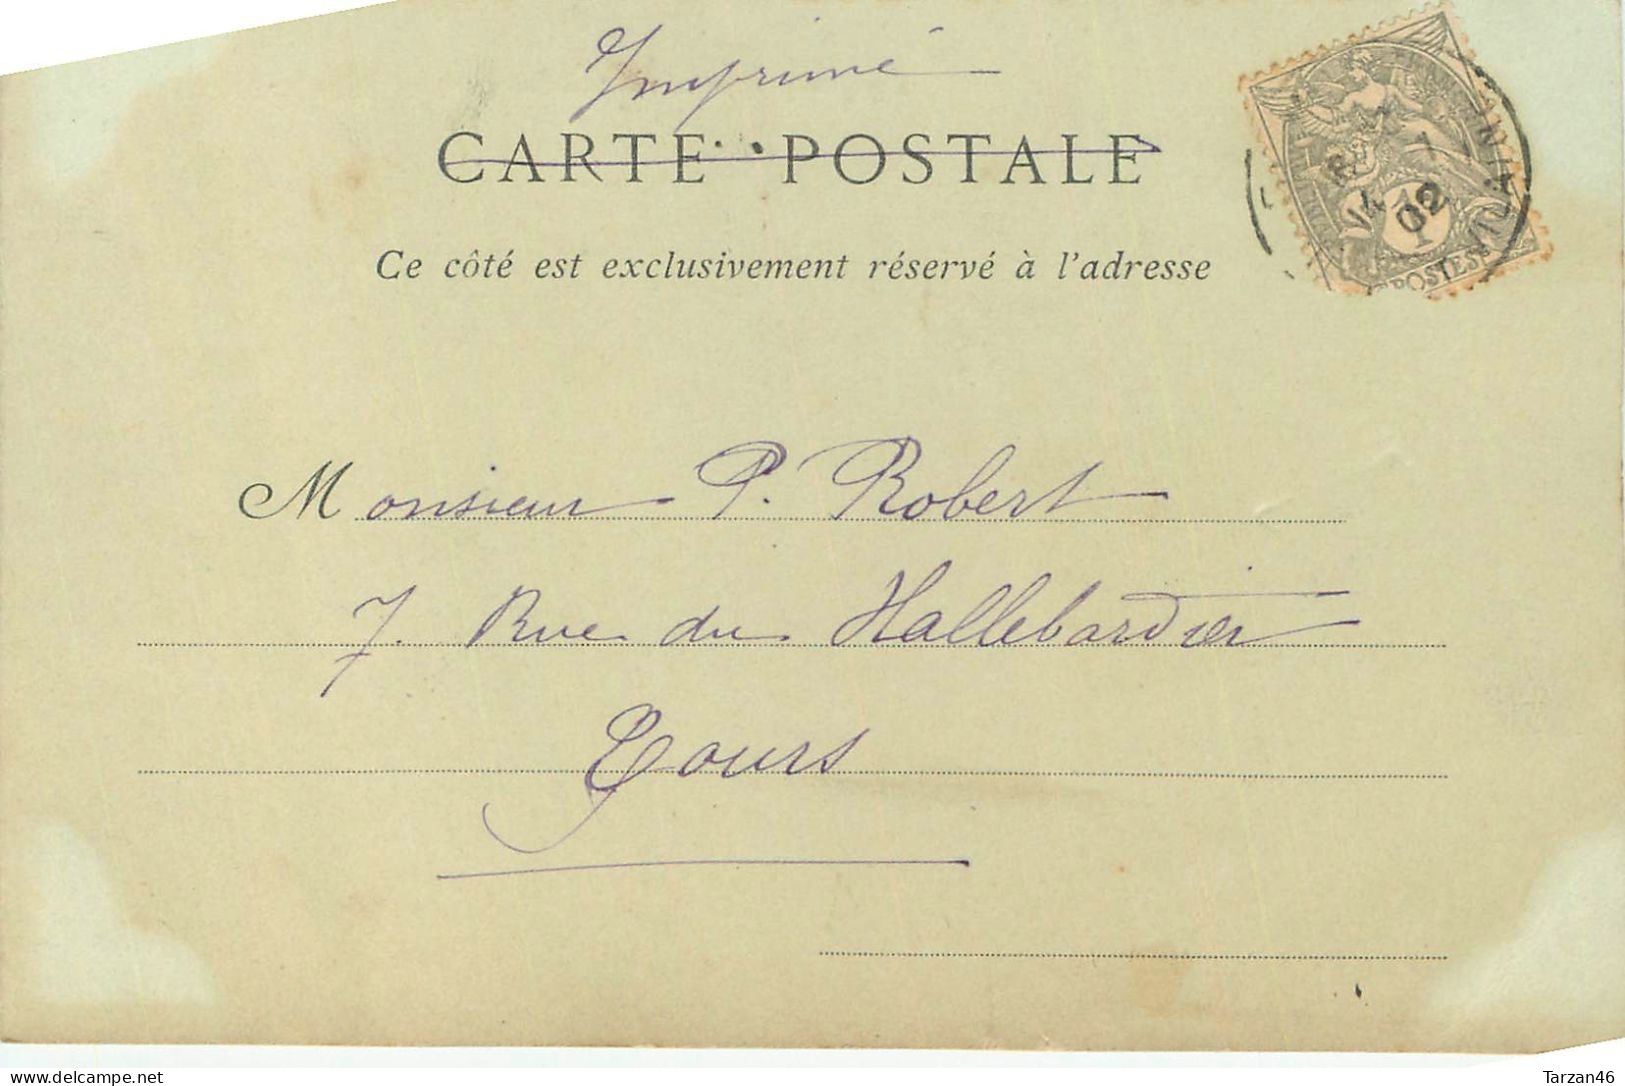 Imprimé
CARTE POSTALE
Ce côté est exclusivement réservé à l'adresse
02
VILAIN
1
POSTES
Monsieur P. Robert
7. Rue du Hallebardier
Tours
Tarzan46